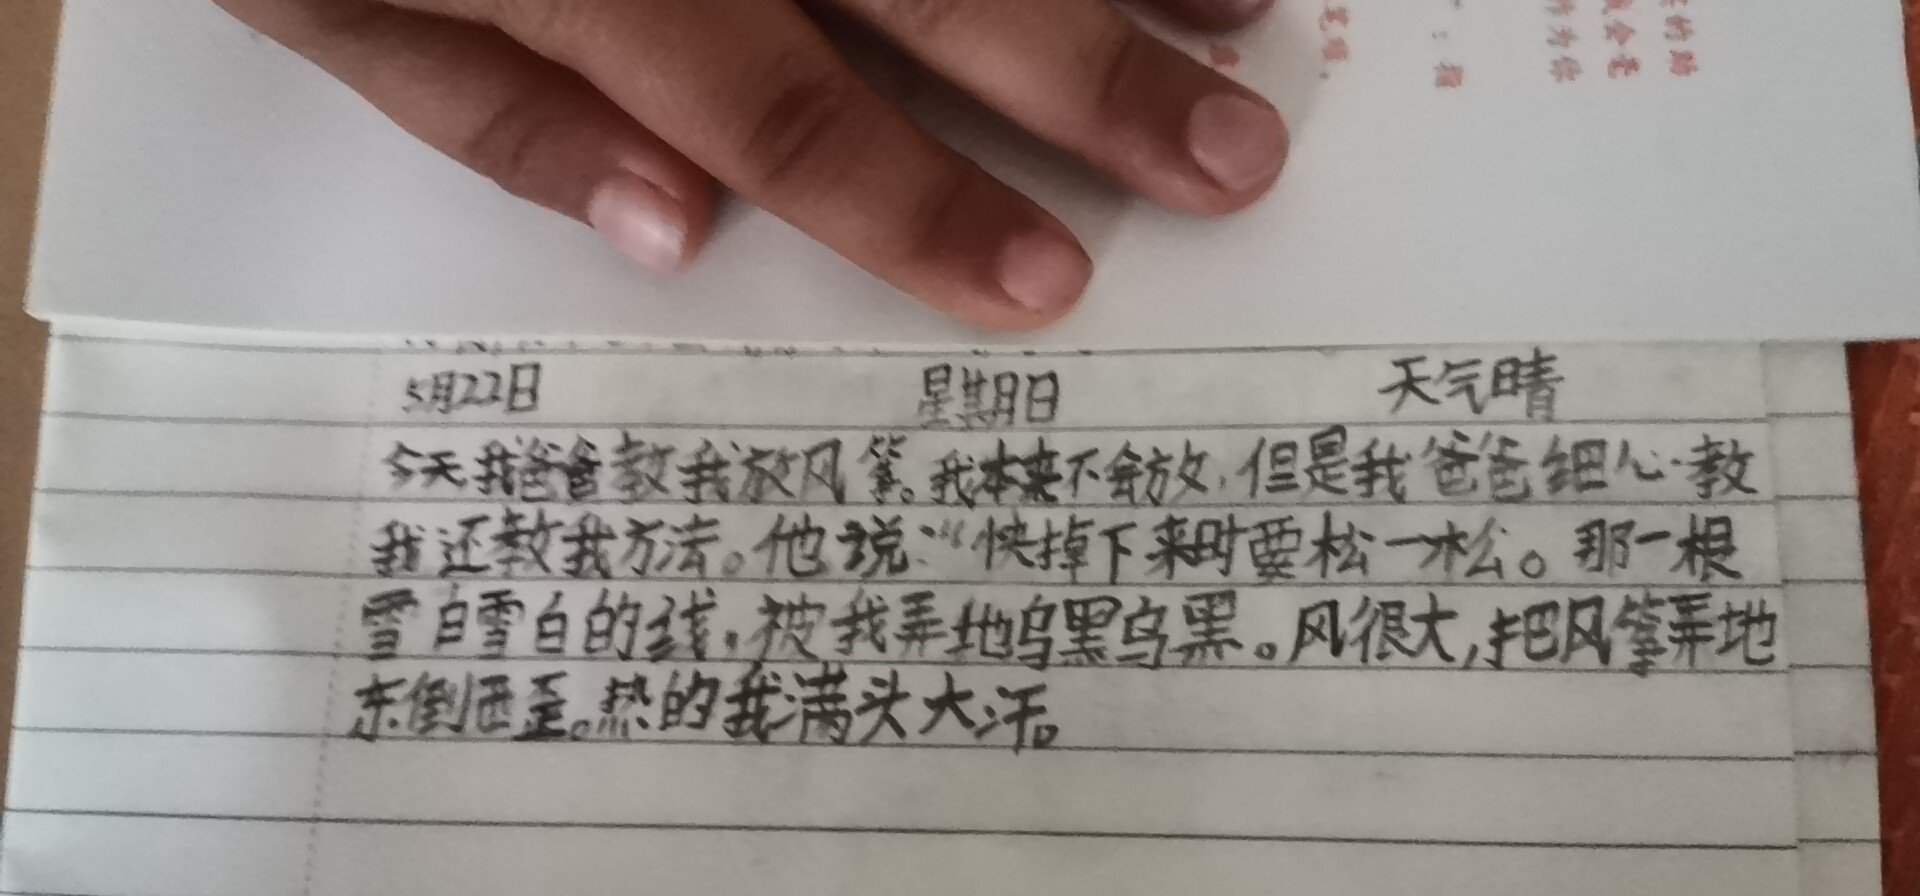 5月22日 星期日 天气晴
今天我爸爸教我放风筝。我本来不会放,但是我爸爸细心教
我还教我方法。他说:“快掉下来时要松一松。那一根
雪白雪白的线,被我弄地乌黑乌黑。风很大,把风筝弄地
东倒西歪。热的我满头大汗。